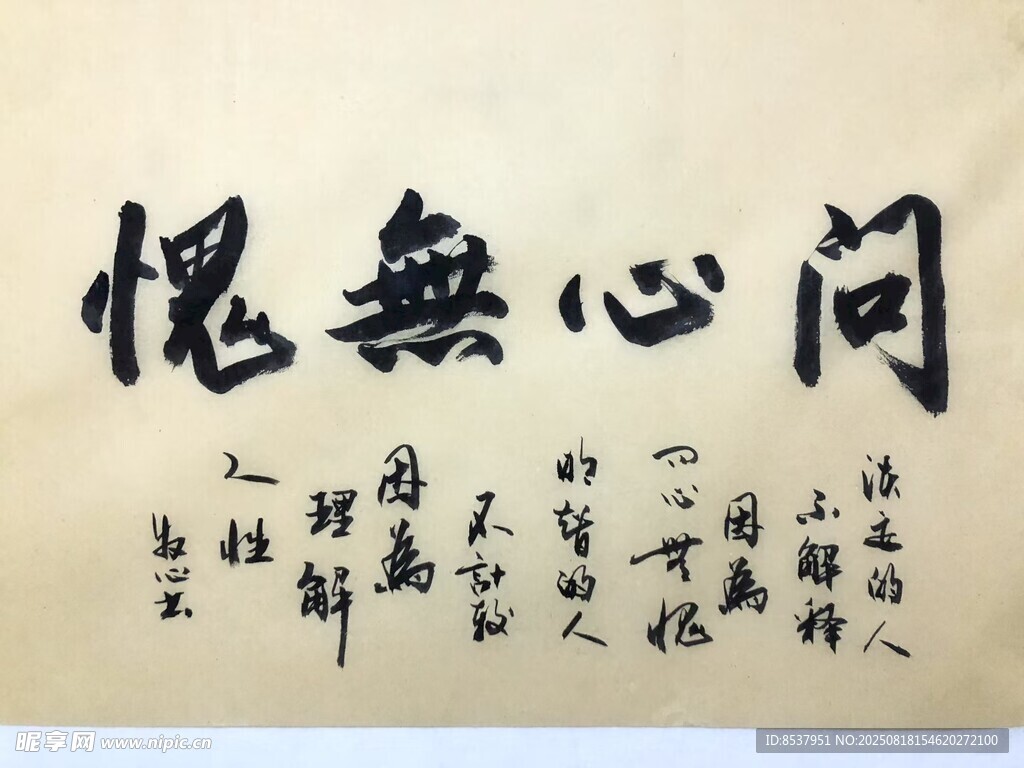 問心無愧
淡定的人
不解释
因為
问心無愧
明智的人
不計较
因為
理解
人性
牧心书
昵享网 www.nipic.cn
ID:8537951 NO:20250818154620272100